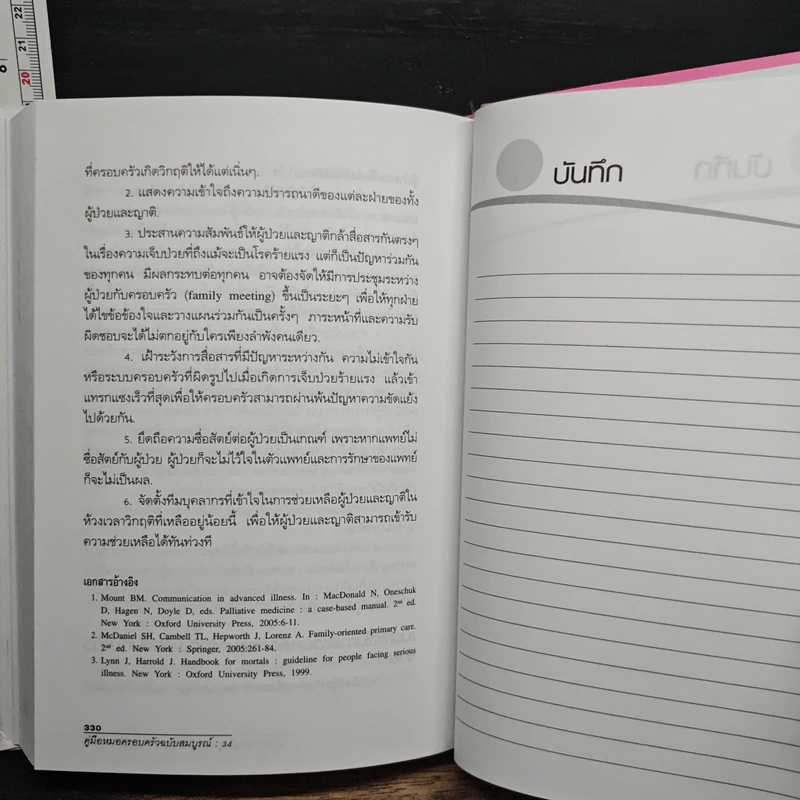 ที่ครอบครัวเกิดวิกฤติให้ได้แต่เนิ่นๆ.
2. แสดงความเข้าใจถึงความปรารถนาดีของแต่ละฝ่ายของทั้ง
ผู้ป่วยและญาติ.
3. ประสานความสัมพันธ์ให้ผู้ป่วยและญาติกล้าสื่อสารกันตรงๆ
ในเรื่องความเจ็บป่วยที่ถึงแม้จะเป็นโรคร้ายแรง แต่ก็เป็นปัญหาร่วมกัน
ของทุกคน มีผลกระทบต่อทุกคน อาจต้องจัดให้มีการประชุมระหว่าง
ผู้ป่วยกับครอบครัว (family meeting) ขึ้นเป็นระยะๆ เพื่อให้ทุกฝ่าย
ได้ไขข้อข้องใจและวางแผนร่วมกันเป็นครั้งๆ ภาระหน้าที่และความรับ
ผิดชอบจะได้ไม่ตกอยู่กับใครเพียงลำพังคนเดียว.
4. เฝ้าระวังการสื่อสารที่มีปัญหาระหว่างกัน ความไม่เข้าใจกัน
หรือระบบครอบครัวที่ผิดรูปไปเมื่อเกิดการเจ็บป่วยร้ายแรง แล้วเข้า
แทรกแซงเร็วที่สุดเพื่อให้ครอบครัวสามารถผ่านพ้นปัญหาความขัดแย้ง
ไปด้วยกัน.
5. ยึดถือความซื่อสัตย์ต่อผู้ป่วยเป็นเกณฑ์ เพราะหากแพทย์ไม่
ซื่อสัตย์กับผู้ป่วย ผู้ป่วยก็จะไม่ไว้ใจในตัวแพทย์และการรักษาของแพทย์
ก็จะไม่เป็นผล.
6. จัดตั้งทีมบุคลากรที่เข้าใจในการช่วยเหลือผู้ป่วยและญาติใน
ห้วงเวลาวิกฤติที่เหลืออยู่น้อยนี้ เพื่อให้ผู้ป่วยและญาติสามารถเข้ารับ
ความช่วยเหลือได้ทันท่วงที
เอกสารอ้างอิง
1. Mount BM. Communication in advanced illness. In : MacDonald N, Oneschuk
D, Hagen N, Doyle D, eds. Palliative medicine : a case-based manual. 2nd ed.
New York : Oxford University Press, 2005:6-11.
2. McDaniel SH, Cambell TL, Hepworth J, Lorenz A. Family-oriented primary care.
2nd ed. New York : Springer, 2005:261-84.
3. Lynn J, Harrold J. Handbook for mortals : guideline for people facing serious
illness. New York : Oxford University Press, 1999.
330
คู่มือหมอครอบครัวฉบับสมบูรณ์ : 34
บันทึก
20
21
22